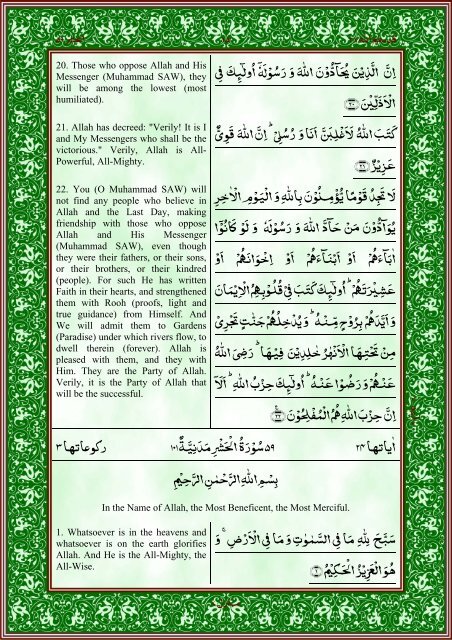 20. Those who oppose Allah and His
Messenger (Muhammad SAW), they
will be among the lowest (most
humiliated).
اِنَّ الَّذِيْنَ يُحَآدُّوْنَ اللّٰهَ وَ رَسُوْلَهٗٓ اُولٰٓئِكَ فِى
الْاَذَلِّيْنَ ﴿۲۰﴾
21. Allah has decreed: "Verily! It is I
and My Messengers who shall be the
victorious." Verily, Allah is All-
Powerful, All-Mighty.
كَتَبَ اللّٰهُ لَاَغْلِبَنَّ اَنَا وَ رُسُلِىْ ؕ اِنَّ اللّٰهَ قَوِىٌّ
عَزِيْزٌ ﴿۲۱﴾
22. You (O Muhammad SAW) will
not find any people who believe in
Allah and the Last Day, making
friendship with those who oppose
Allah and His Messenger
(Muhammad SAW), even though
they were their fathers, or their sons,
or their brothers, or their kindred
(people). For such He has written
Faith in their hearts, and strengthened
them with Rooh (proofs, light and
true guidance) from Himself. And
We will admit them to Gardens
(Paradise) under which rivers flow, to
dwell therein (forever). Allah is
pleased with them, and they with
Him. They are the Party of Allah.
Verily, it is the Party of Allah that
will be the successful.
لَا تَجِدُ قَوْمًا يُّؤْمِنُوْنَ بِاللّٰهِ وَ الْيَوْمِ الْاٰخِرِ
يُوَآدُّوْنَ مَنْ حَآدَّ اللّٰهَ وَ رَسُوْلَهٗ وَ لَوْ كَانُوْٓا
اٰبَآءَهُمْ اَوْ اَبْنَآءَهُمْ اَوْ اِخْوَانَهُمْ اَوْ
عَشِيْرَتَهُمْ ؕ اُولٰٓئِكَ كَتَبَ فِىْ قُلُوْبِهِمُ الْاِيْمَانَ
وَ اَيَّدَهُمْ بِرُوْحٍ مِّنْهُ ؕ وَ يُدْخِلُهُمْ جَنّٰتٍ تَجْرِىْ
مِنْ تَحْتِهَا الْاَنْهٰرُ خٰلِدِيْنَ فِيْهَا ؕ رَضِىَ اللّٰهُ
عَنْهُمْ وَ رَضُوْا عَنْهُ ؕ اُولٰٓئِكَ حِزْبُ اللّٰهِ ؕ اَلَآ
اِنَّ حِزْبَ اللّٰهِ هُمُ الْمُفْلِحُوْنَ ﴿۲۲﴾
اٰياتها ۲۴ ۵۹ سُوْرَةُ الْحَشْرِ مَدَنِيَّةٌ ۱۰۱ ركوعاتها ۳
بِسْمِ اللّٰهِ الرَّحْمٰنِ الرَّحِيْمِ
In the Name of Allah, the Most Beneficent, the Most Merciful.
1. Whatsoever is in the heavens and
whatsoever is on the earth glorifies
Allah. And He is the All-Mighty, the
All-Wise.
سَبَّحَ لِلّٰهِ مَا فِى السَّمٰوٰتِ وَ مَا فِى الْاَرْضِ ۚ وَ
هُوَ الْعَزِيْزُ الْحَكِيْمُ ﴿۱﴾